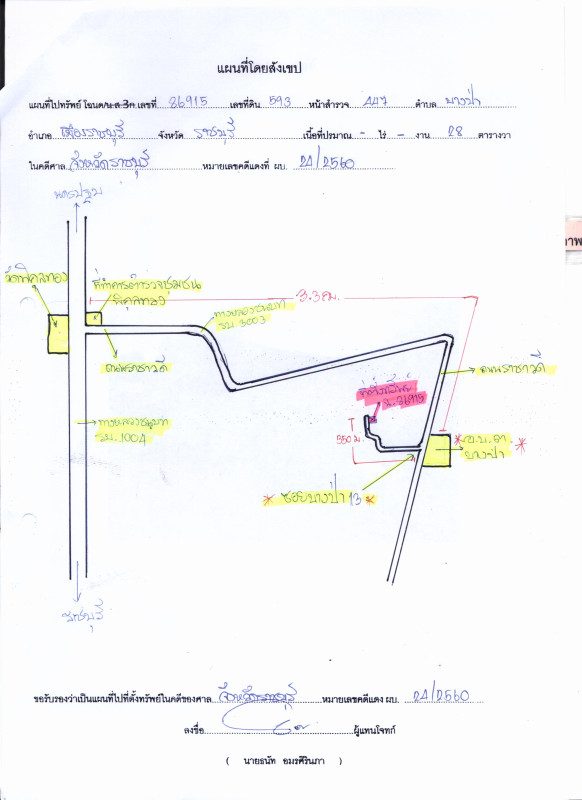 แผนที่โดยสังเขป
แผนที่ไปทรัพย์ โฉนด/น.ส.3ก เลขที่ 86915 เลขที่ดิน 593 หน้าสำรวจ 447 ตำบล บางป่า
อำเภอ เมืองราชบุรี จังหวัด ราชบุรี เนื้อที่ประมาณ - ไร่ - งาน 28 ตารางวา
ในคดีศาล จังหวัดราชบุรี หมายเลขคดีแดงที่ ผบ. 24/2560
นครปฐม
าพ
วัดพิกุลทอง
ที่ทำการตำรวจชุมชน
พิกุลทอง
3.3 กม.
ทางหลวงชนบท
รบ. 3003
ถนนราชาวดี
ถนนราชาวดี
ที่ตั้งทรัพย์
ฉ. 86915
ทางหลวงชนบท
รบ. 1004
550 ม.
* อ.บ.ต. *
บางป่า
* ซอยบางป่า 13 *
ราชบุรี
ขอรับรองว่าเป็นแผนที่ไปที่ตั้งทรัพย์ในคดีของศาล จังหวัดราชบุรี หมายเลขคดีแดง ผบ. 24/2560
ลงชื่อ ผู้แทนโจทก์
( นายธนัท อมรศิรินภา )